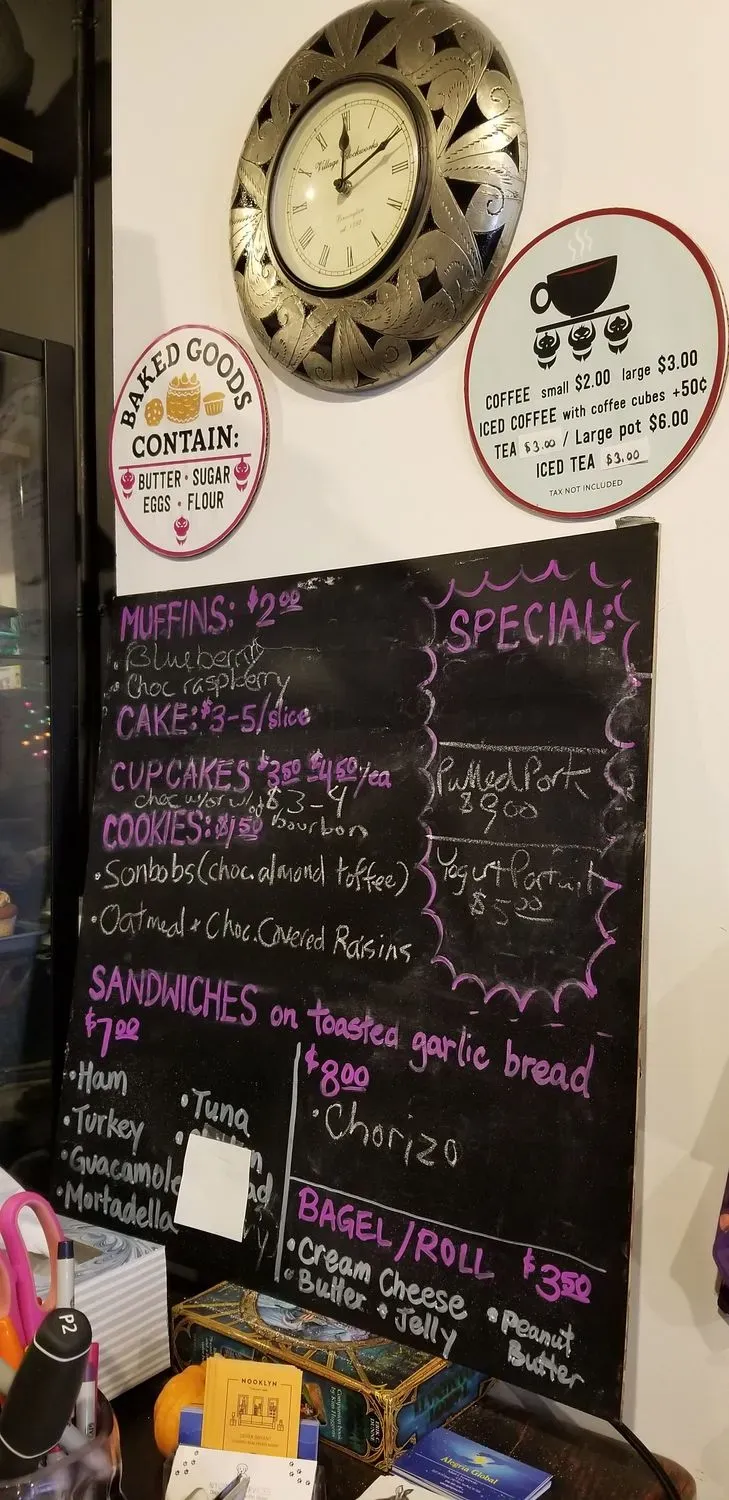 Village Clockworks
Bennington
est. 1792
BAKED GOODS
CONTAIN:
BUTTER • SUGAR
EGGS • FLOUR
COFFEE small $2.00 large $3.00
ICED COFFEE with coffee cubes +50¢
TEA $3.00 / Large pot $6.00
ICED TEA $3.00
TAX NOT INCLUDED
MUFFINS: $2.00
• Blueberry
• Choc raspberry
CAKE: $3-5/slice
CUPCAKES $3.50 $4.50/ea
choc w/or w/o $3-4
bourbon
COOKIES: $1.50
• Sonbobs (choc. almond toffee)
• Oatmeal + Choc. Covered Raisins
SPECIAL:
Pulled Pork
$9.00
Yogurt Parfait
$5.00
SANDWICHES on toasted garlic bread
$7.00
• Ham
• Turkey
• Guacamole
• Mortadella
• Tuna
$8.00
• Chorizo
BAGEL/ROLL $3.50
• Cream Cheese
• Butter • Jelly
• Peanut
Butter
P2
NOOKLYN
Alegria Global